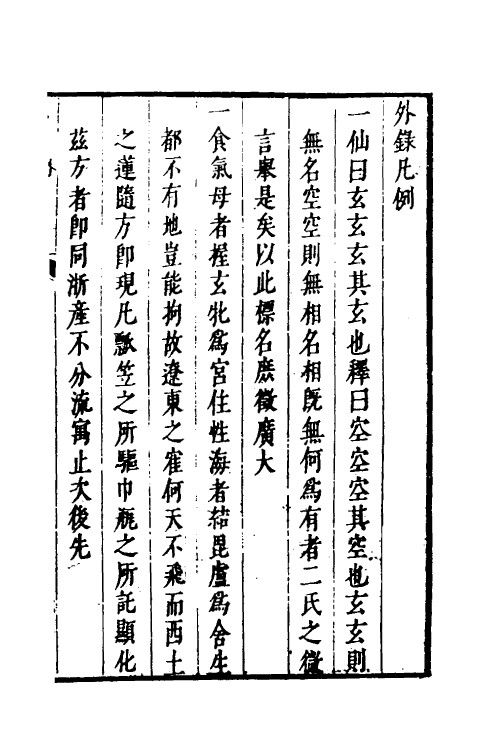 外錄凡例
一仙曰玄玄玄其玄也釋曰空空空其空也玄玄則
無名空空則無相名相旣無何爲有者二氏之徵
言舉是矣以此標名庶徵廣大
一食氣母者握玄牝爲宮住性海者結毘盧爲舍生
都不有地豈能拘故遼東之隺何天不飛而西土
之蓮隨方卽現凡瓢笠之所驅巾瓶之所託顯化
茲方者卽同浙產不分流寓止次後先